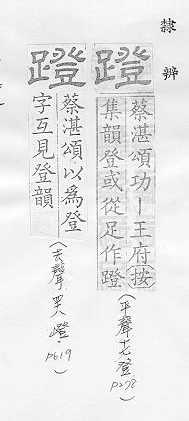 隸辨
蹬
蔡湛頌功丨王府按
集韻登或從足作蹬
(平聲十七登 P278)
蹬
蔡湛頌以為登
字互見登韻
(去聲 嶝 P619)